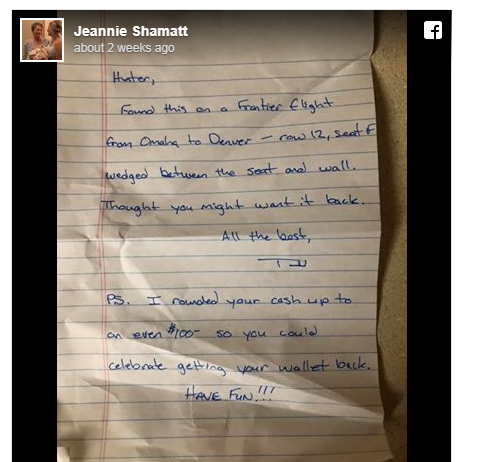 Jeannie Shamatt
about 2 weeks ago
f
Hunter,
Found this on a Frontier flight
from Omaha to Denver – row 12, seat F
wedged between the seat and wall.
Thought you might want it back.
All the best,
TB
PS. I rounded your cash up to
an even $100- so you could
celebrate getting your wallet back.
HAVE FUN!!!